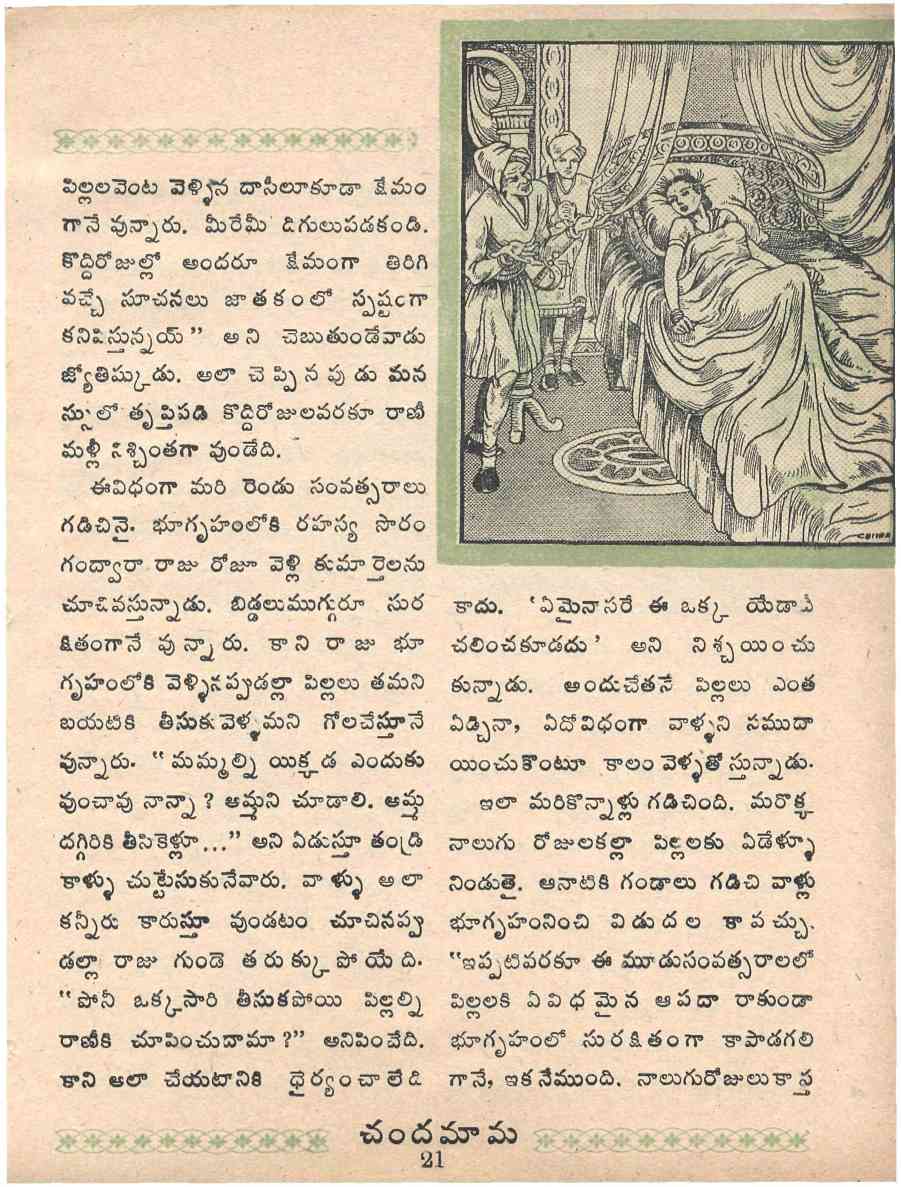 పిల్లలవెంట వెళ్ళిన దాసీలూకూడా క్షేమం
గానే వున్నారు. మీరేమీ దిగులుపడకండి.
కొద్దిరోజుల్లో అందరూ క్షేమంగా తిరిగి
వచ్చే సూచనలు జాతకంలో స్పష్టంగా
కనిపిస్తున్నయ్” అని చెబుతుండేవాడు
జ్యోతిష్కుడు. అలా చెప్పినపుడు మన
స్సులో తృప్తిపడి కొద్దిరోజులవరకూ రాణీ
మల్లీ నిశ్చింతగా వుండేది.
ఈవిధంగా మరి రెండు సంవత్సరాలు
గడిచినై. భూగృహంలోకి రహస్య సొరం
గంద్వారా రాజు రోజూ వెళ్లి కుమార్తెలను
చూచివస్తున్నాడు. బిడ్డలుముగ్గురూ సుర
క్షితంగానే వున్నారు. కాని రాజు భూ
గృహంలోకి వెళ్ళినప్పుడల్లా పిల్లలు తమని
బయటికి తీసుకువెళ్ళమని గోలచేస్తూనే
వున్నారు. “మమ్మల్ని యిక్కడ ఎందుకు
వుంచావు నాన్నా? అమ్మని చూడాలి. అమ్మ
దగ్గిరికి తీసికెళ్లూ...” అని ఏడుస్తూ తండ్రి
కాళ్ళు చుట్టేసుకునేవారు. వాళ్ళు అలా
కన్నీరు కారుస్తూ వుండటం చూచినప్పు
డల్లా రాజు గుండె తరుక్కుపోయేది.
“పోనీ ఒక్కసారి తీసుకపోయి పిల్లల్ని
రాణీకి చూపించుదామా?” అనిపించేది.
కాని అలా చేయటానికి ధైర్యంచాలేది
కాదు. ‘ఏమైనాసరే ఈ ఒక్క యేడాదీ
చలించకూడదు’ అని నిశ్చయించు
కున్నాడు. అందుచేతనే పిల్లలు ఎంత
ఏడ్చినా, ఏదోవిధంగా వాళ్ళని సముదా
యించుకొంటూ కాలం వెళ్ళతోస్తున్నాడు.
ఇలా మరికొన్నాళ్లు గడిచింది. మరొక్క
నాలుగు రోజులకల్లా పిల్లలకు ఏడేళ్ళూ
నిండుతై. ఆనాటికి గండాలు గడిచి వాళ్లు
భూగృహంనించి విడుదల కావచ్చు.
“ఇప్పటివరకూ ఈ మూడుసంవత్సరాలలో
పిల్లలకి ఏవిధమైన ఆపదా రాకుండా
భూగృహంలో సురక్షితంగా కాపాడగలి
గానే, ఇకనేముంది. నాలుగురోజులుకాస్త
చందమామ
21